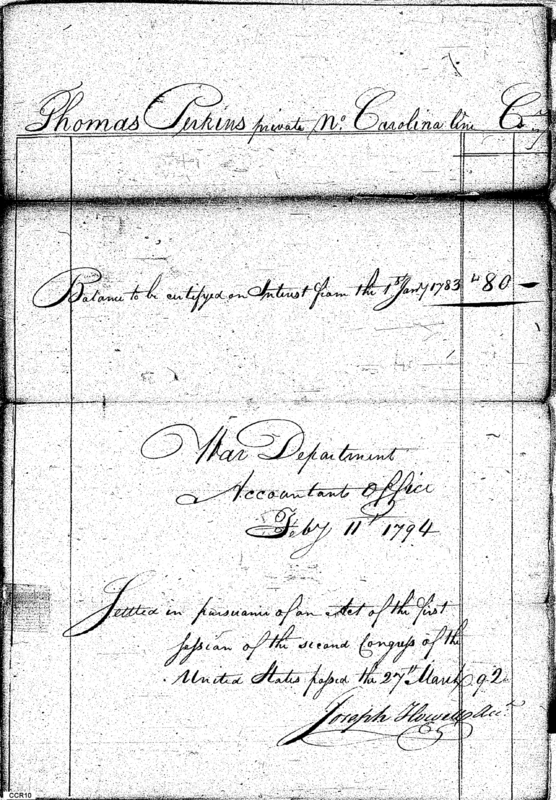 Thomas Perkins private No. Carolina line Cr
Balance to be certifyed on Interest from the 1st Jany 1783 "80 —
War Department
Accountants Office
Feby 11th 1794
Settled in pursuance of an Act of the first
session of the second Congress of the
United States passed the 27th March 92
Joseph Howell Acct.
CCR10